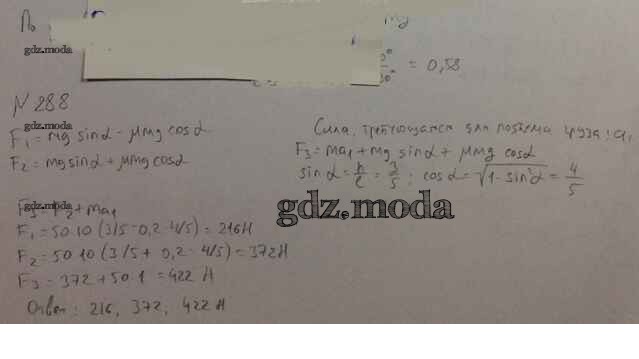 По
mg
gdz.moda
= 0,58
N 288
gdz.moda
F₁ = mg sinα - μmg cosα
F₂ = mg sinα + μmg cosα
Сила, требующаяся для подъема груза:
F₃ = ma₁ + mg sinα + μmg cosα
sinα = h/l = 3/5; cosα = √1 - sin²α = 4/5
gdz.moda
gdz.moda
F₃ = F₂ + ma₁
F₁ = 50·10 (3/5 - 0,2·4/5) = 216Н
F₂ = 50·10 (3/5 + 0,2·4/5) = 372Н
F₃ = 372 + 50·1 = 422 Н
Ответ: 216, 372, 422 Н